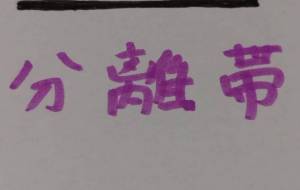 分離帯